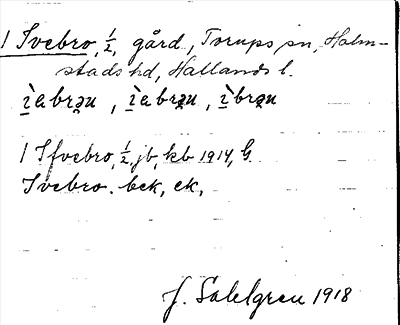 1 Ivebro, 1/2, gård, Torups sn, Halm-
stads hd, Hallands l.
ìabrǝn, ìabrǝn, ìbrǝn
1 Ifvebro, 1/2, jb, kb 1914, G.
Ivebro. bek, ek,
J. Sahlgren 1918